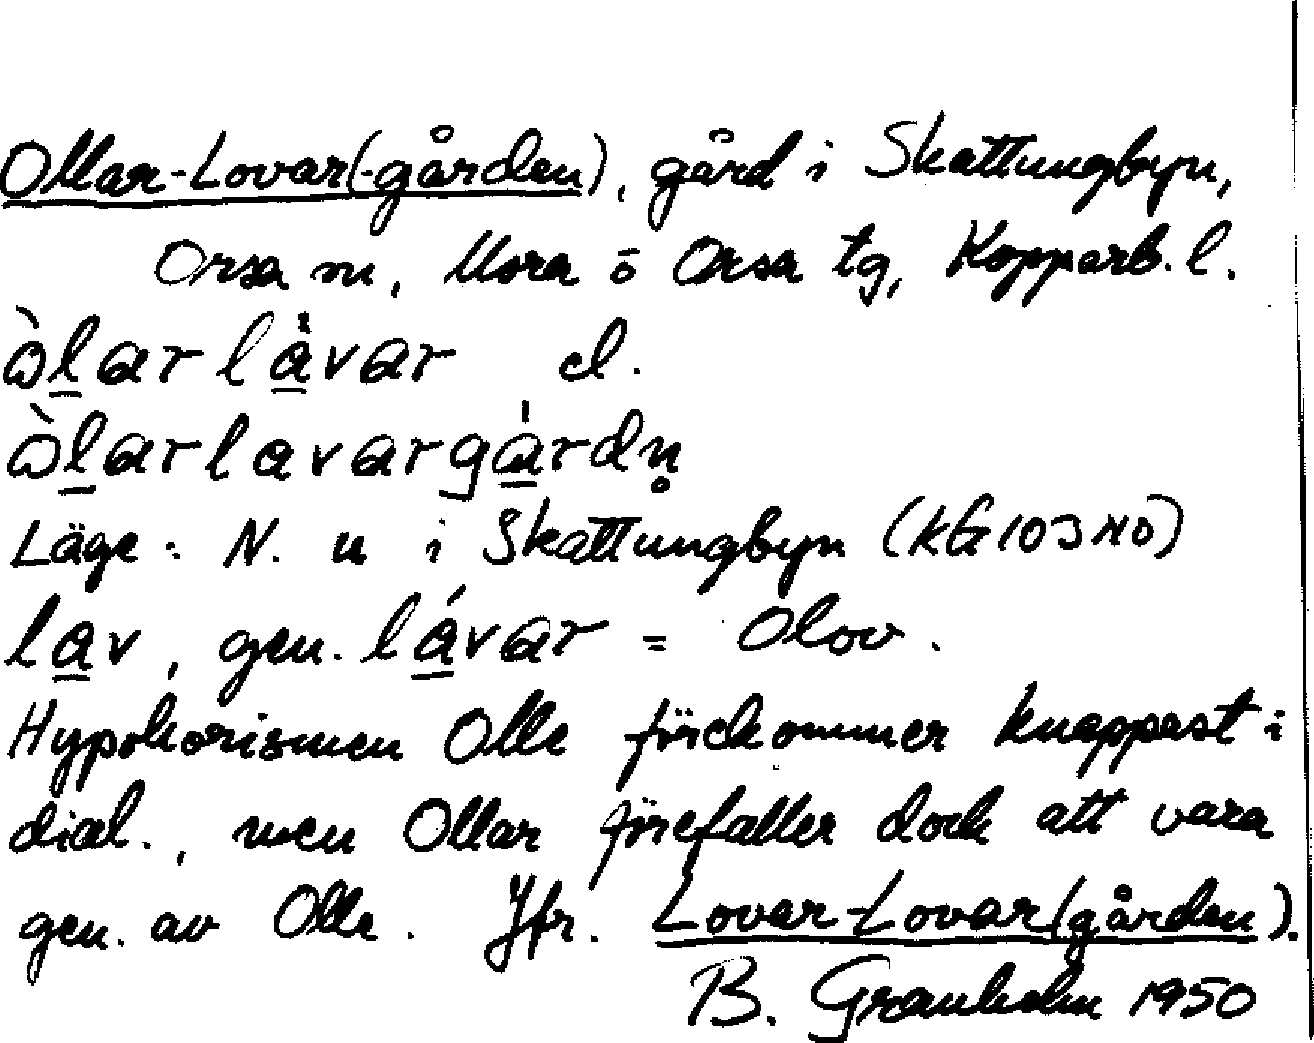 Ollar-Lovar(-gården), gård i Skattungbyn,
Orsa sn, Mora o Orsa tg, Kopparb. l.
ɷ̀l̠arlå̠var el.
ɷ̀l̠arlavargå̠rdn̥
Läge: N. u i Skattungbyn (KG 103 HD)
la̠v, gen. lá̠var = Olov.
Hypokorismen Olle förekommer knappast i
dial., men Ollar förefaller dock att vara
gen. av Olle. Jfr. Lovar-Lovar(gården).
B. Granholm 1950